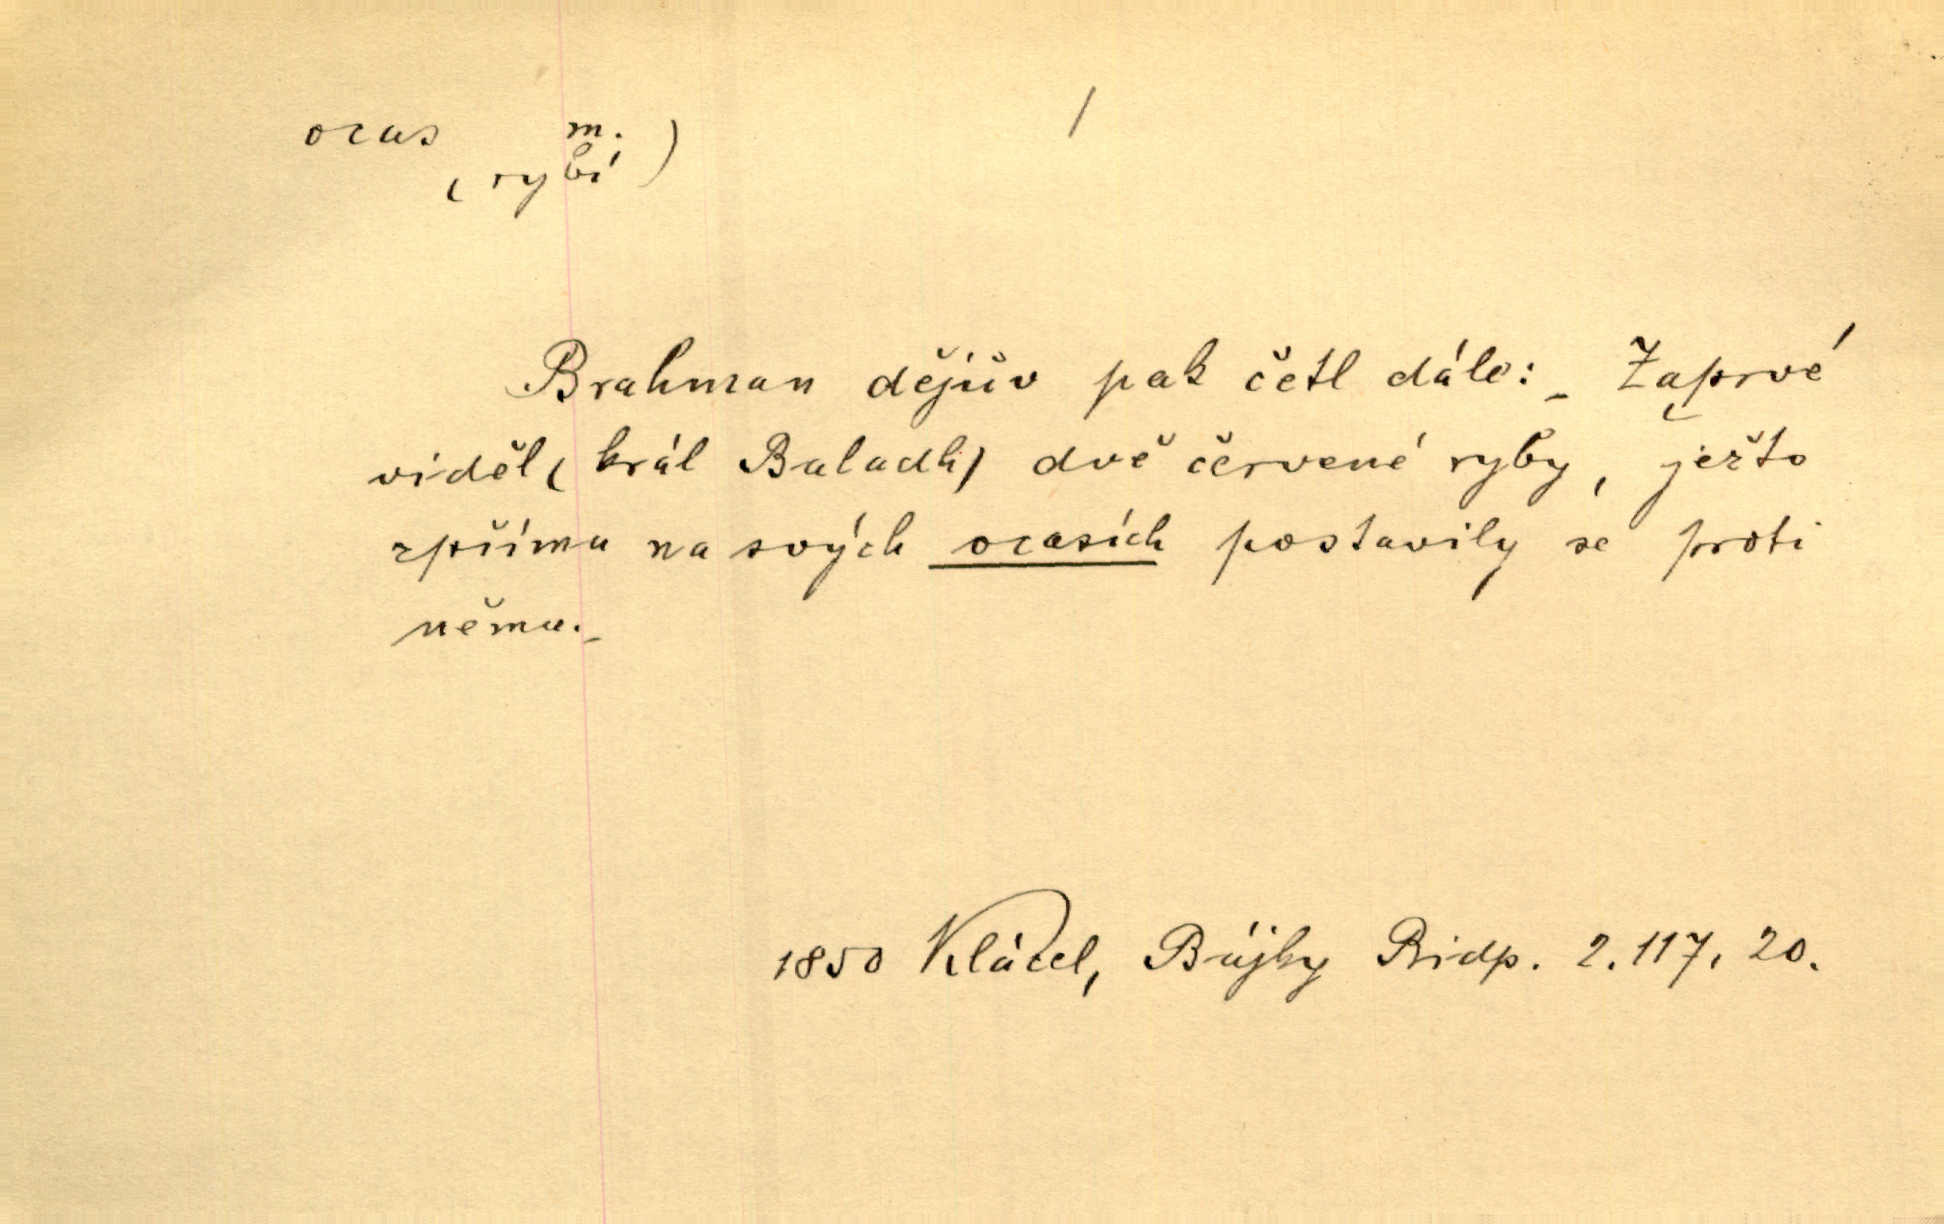 ocas m.
(rybí)
/
Brahman dějův pak četl dále: _ Zaprvé
viděl (král Baladh) dvě červené ryby, ježto
zpříma na svých ocasích postavily se proti
němu._
1850 Klácel, Bájky Bidp. 2.117, 20.